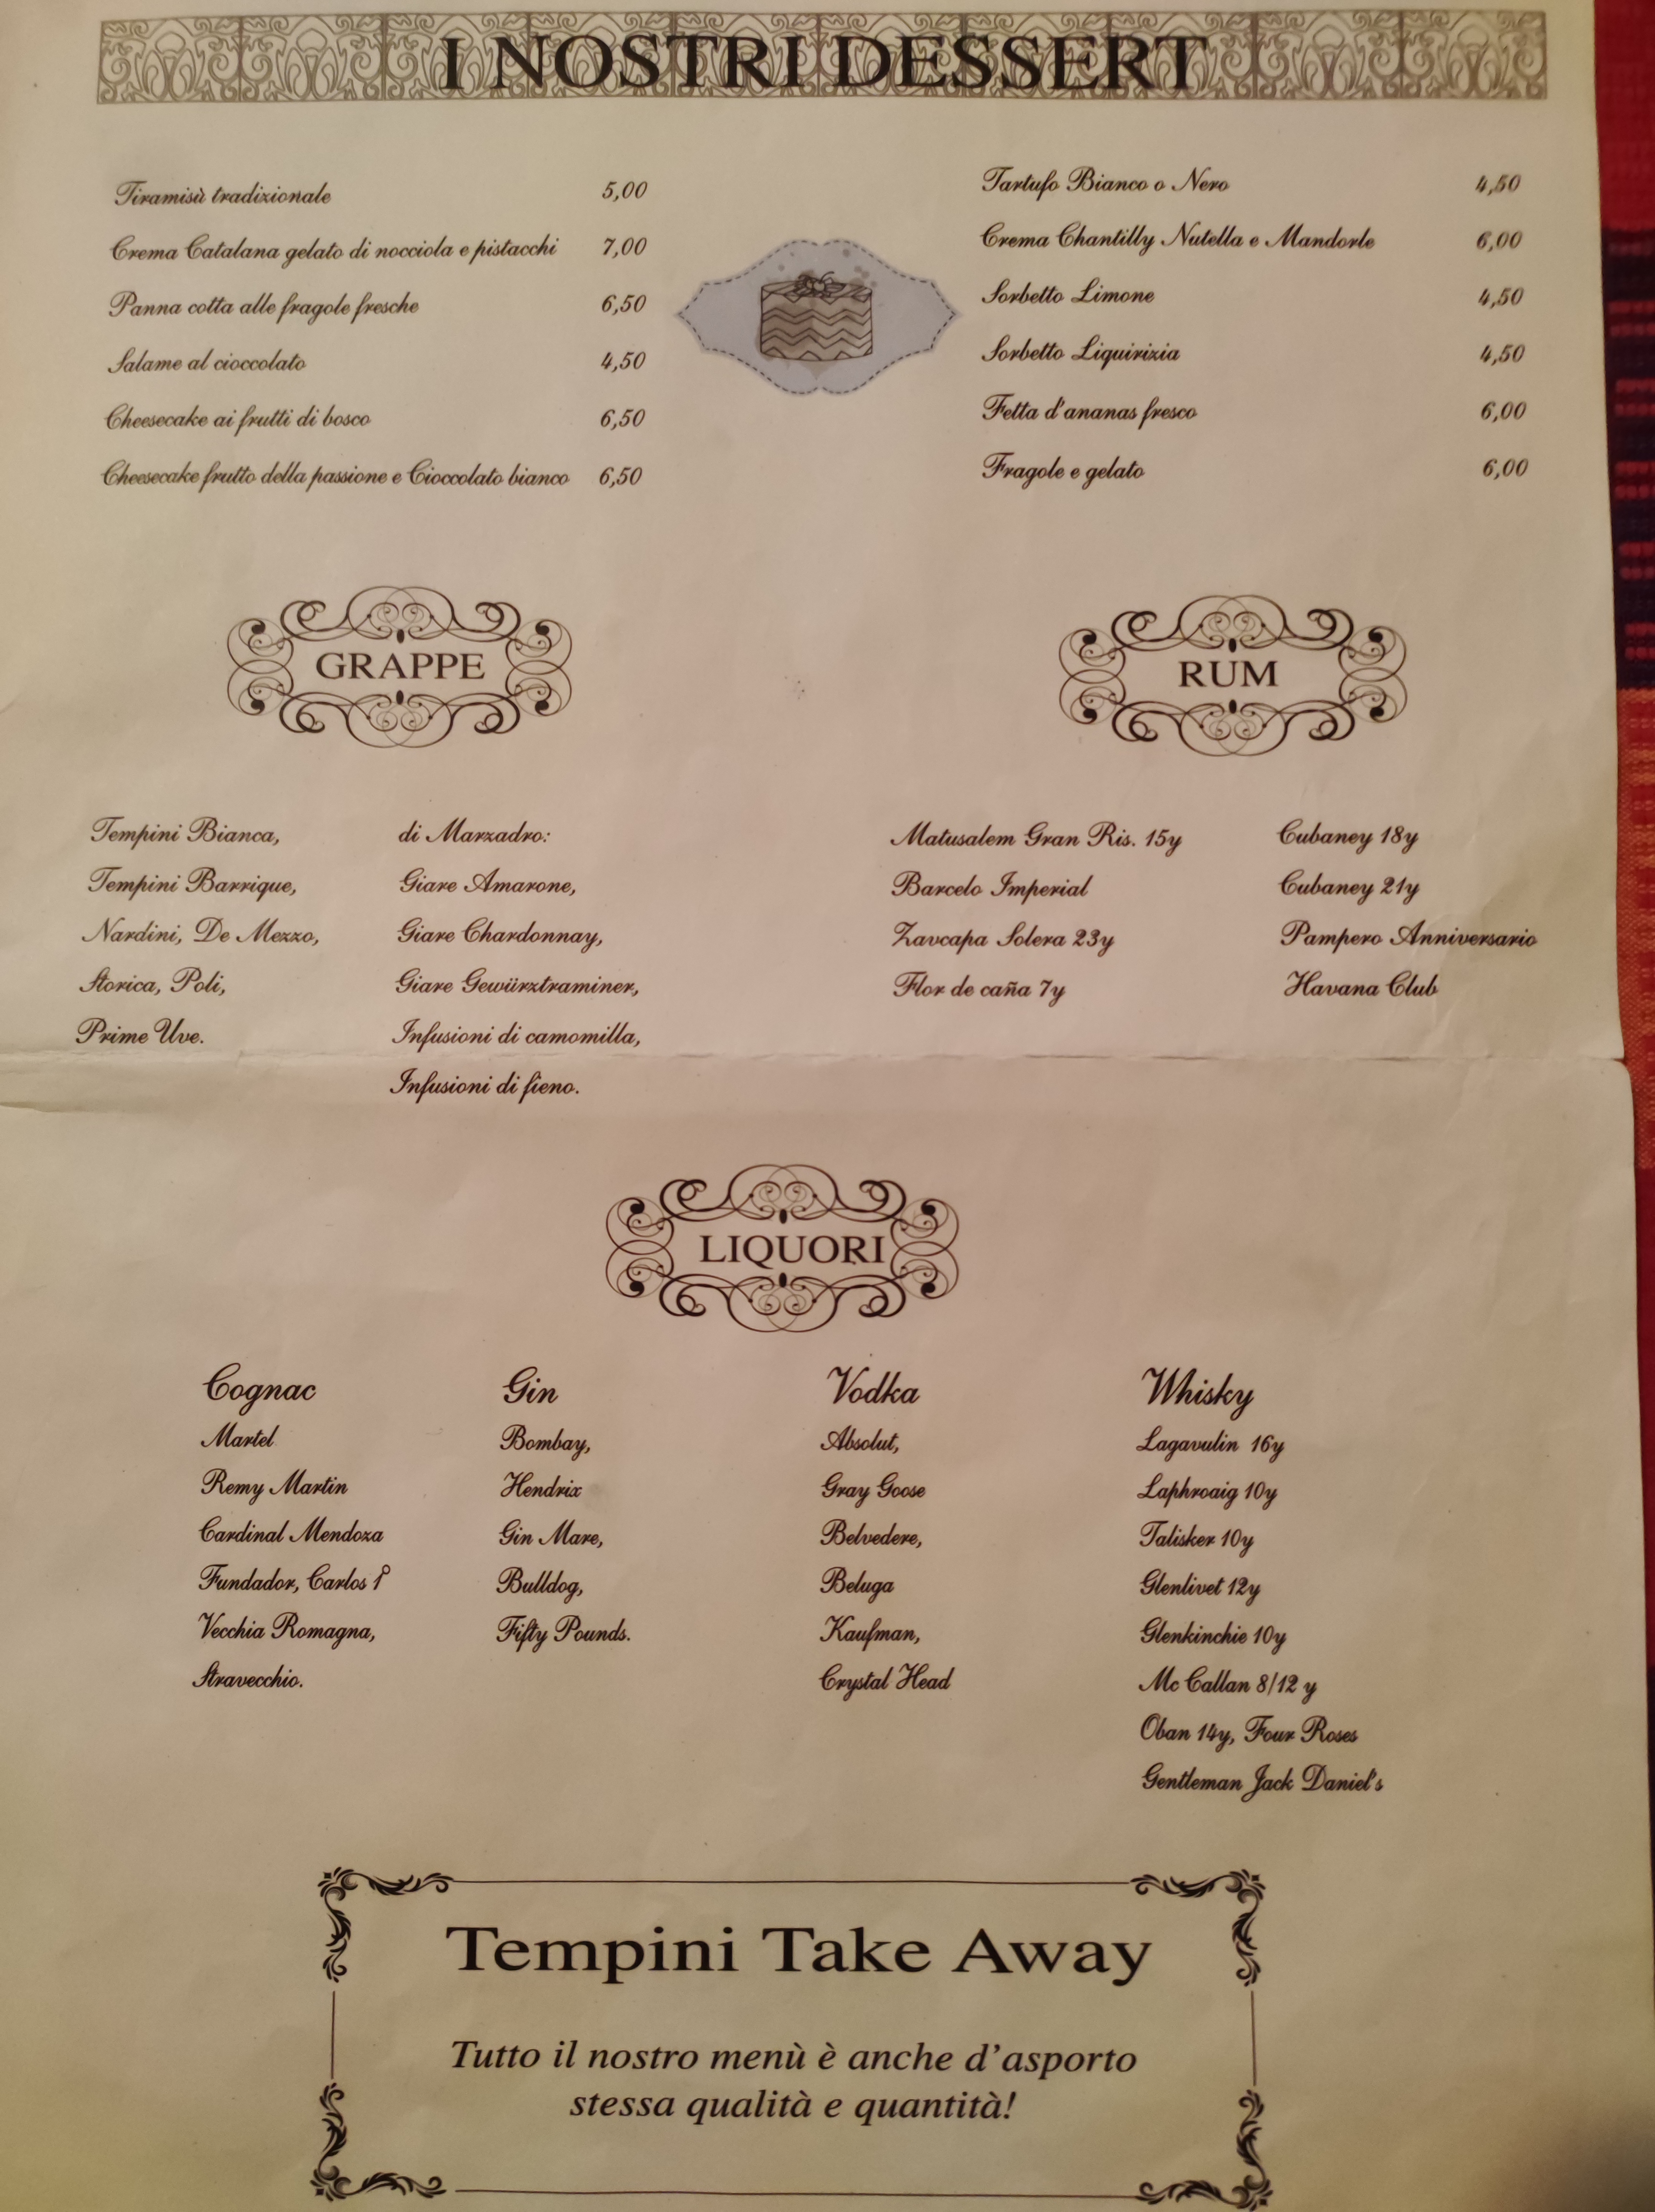 I NOSTRI DESSERT
Tiramisù tradizionale 5,00
Crema Catalana gelato di nocciola e pistacchi 7,00
Panna cotta alle fragole fresche 6,50
Salame al cioccolato 4,50
Cheesecake ai frutti di bosco 6,50
Cheesecake frutto della passione e Cioccolato bianco 6,50
Tartufo Bianco o Nero 4,50
Crema Chantilly Nutella e Mandorle 6,00
Sorbetto Limone 4,50
Sorbetto Liquirizia 4,50
Fetta d'ananas fresco 6,00
Fragole e gelato 6,00
GRAPPE
Tempini Bianca,
Tempini Barrique,
Nardini, De Mezzo,
Storica, Poli,
Prime Uve.
di Marzadro:
Giare Amarone,
Giare Chardonnay,
Giare Gewürztraminer,
Infusioni di camomilla,
Infusioni di fieno.
RUM
Matusalem Gran Ris. 15y
Barcelo Imperial
Zavcapa Solera 23y
Flor de caña 7y
Cubaney 18y
Cubaney 21y
Pampero Anniversario
Havana Club
LIQUORI
Cognac
Martel
Remy Martin
Cardinal Mendoza
Fundador, Carlos 1º
Vecchia Romagna,
Stravecchio.
Gin
Bombay,
Hendrix
Gin Mare,
Bulldog,
Fifty Pounds.
Vodka
Absolut,
Gray Goose
Belvedere,
Beluga
Kaufman,
Crystal Head
Whisky
Lagavulin 16y
Laphroaig 10y
Talisker 10y
Glenlivet 12y
Glenkinchie 10y
Mc Callan 8/12 y
Oban 14y, Four Roses
Gentleman Jack Daniel's
Tempini Take Away
Tutto il nostro menù è anche d'asporto
stessa qualità e quantità!